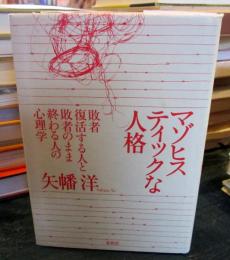 マゾヒス
ティックな
人格
敗者
復活する人と
敗者のまま
終わる人の
心理学
矢幡 洋